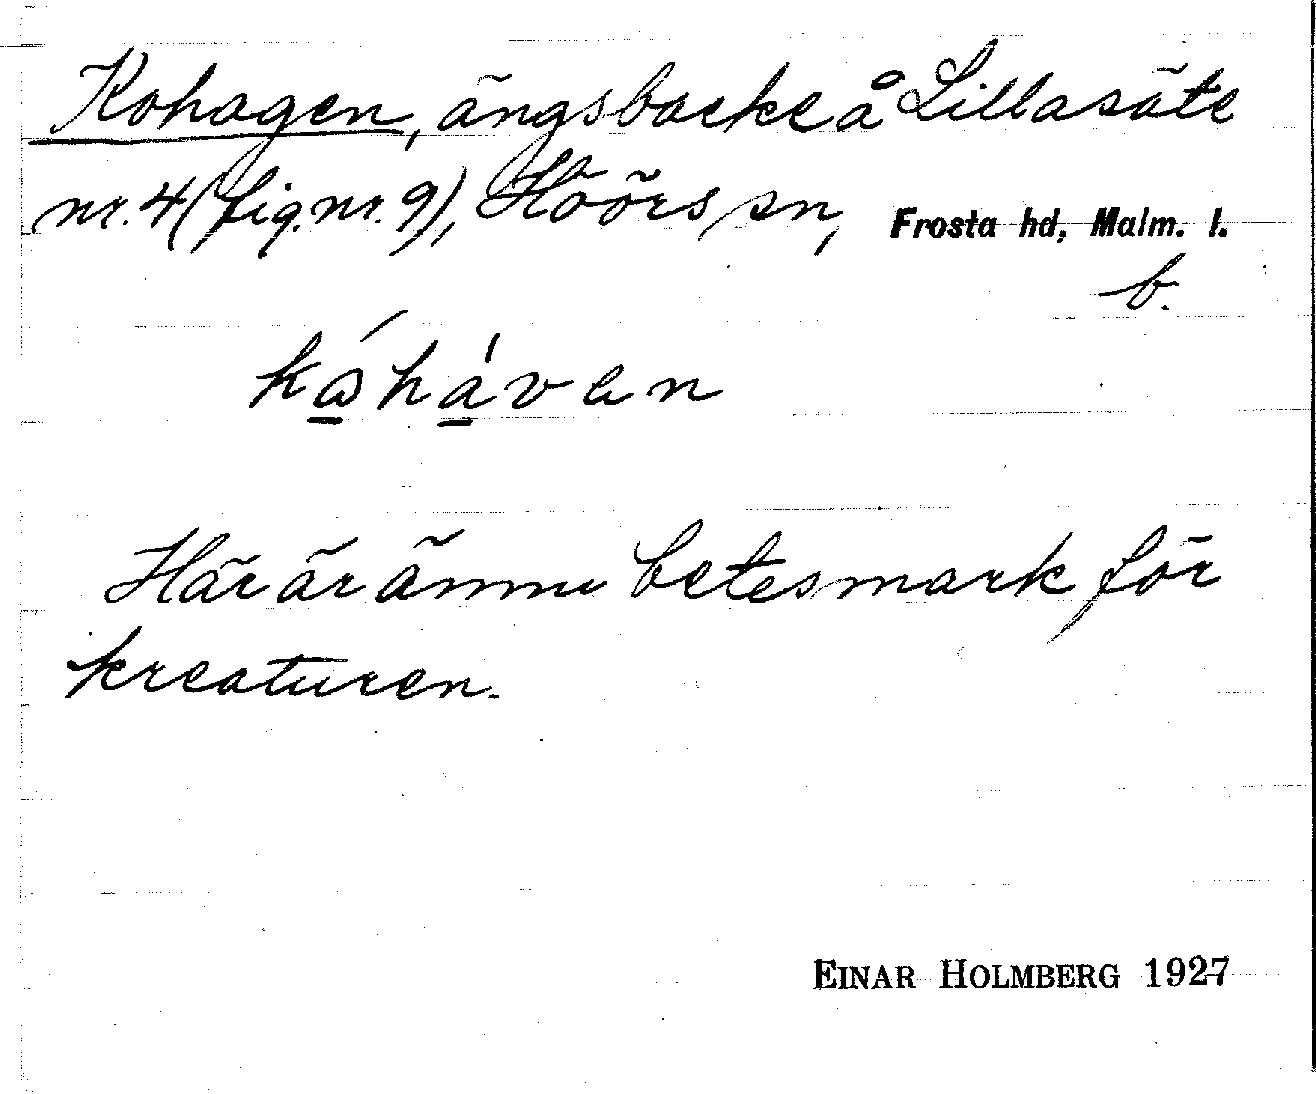 Kohagen, ängsbacke å Lillasäte
nr. 4 (fig. nr. 9), Höörs sn, Frosta hd, Malm. l.
b.
Här är ännu betesmark för
kreaturen.
EINAR HOLMBERG 1927